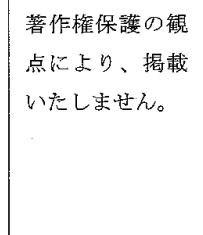 著作権保護の観
点により、掲載
いたしません。